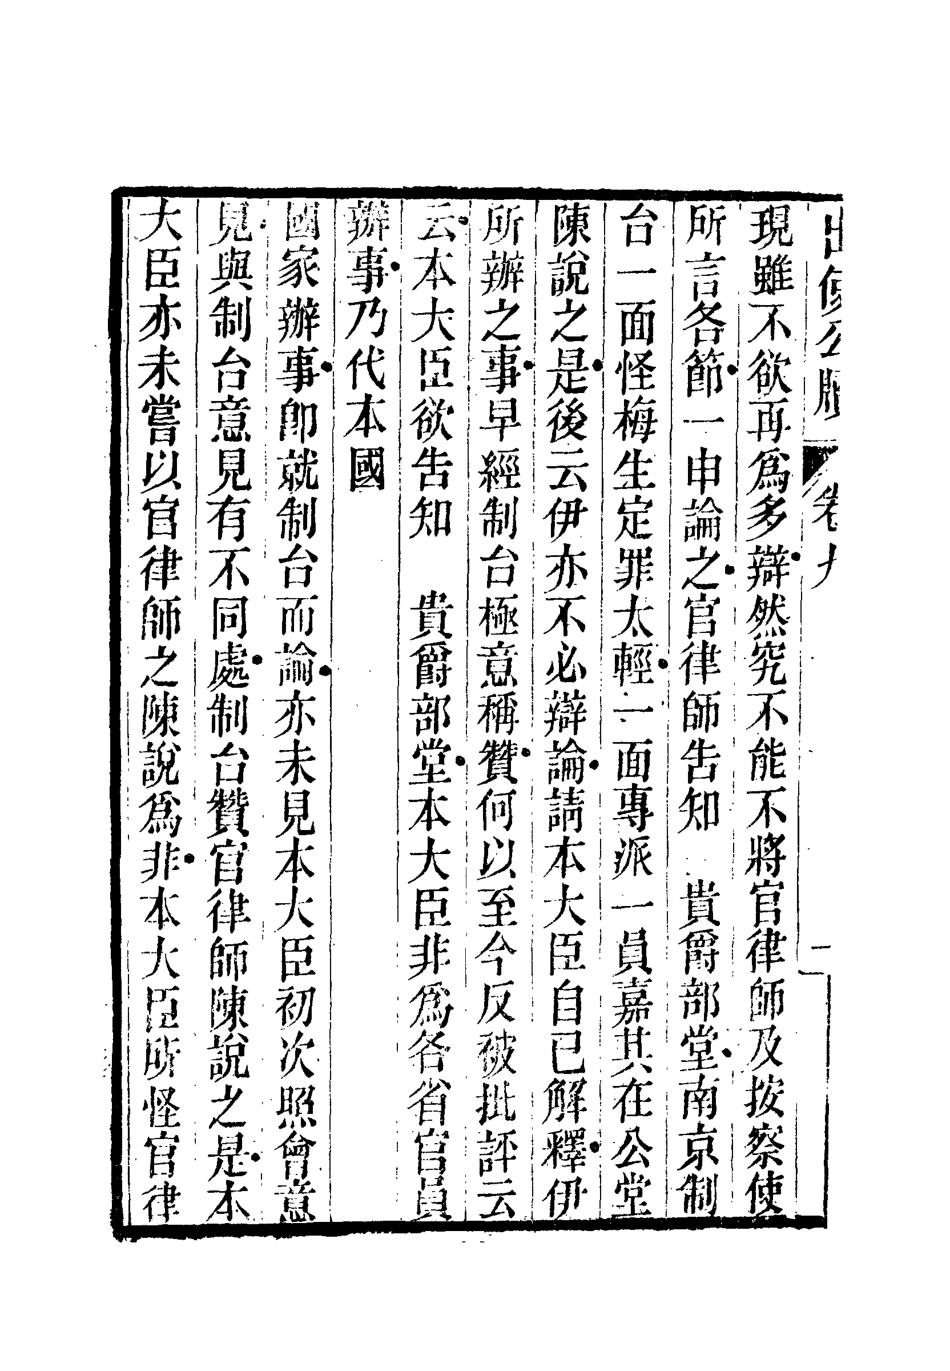 出使公牘　卷九　一
現雖不欲再爲多辯然究不能不將官律師及按察使
所言各節一申論之官律師告知　貴爵部堂南京制
台一面怪梅生定罪太輕一面專派一員嘉其在公堂
陳說之是後云伊亦不必辯論請本大臣自已解釋伊
所辦之事早經制台極意稱贊何以至今反被批評云
云本大臣欲告知　貴爵部堂本大臣非爲各省官員
辦事乃代本國
國家辦事卽就制台而論亦未見本大臣初次照會意
見與制台意見有不同處制台贊官律師陳說之是本
大臣亦未嘗以官律師之陳說爲非本大臣所怪官律